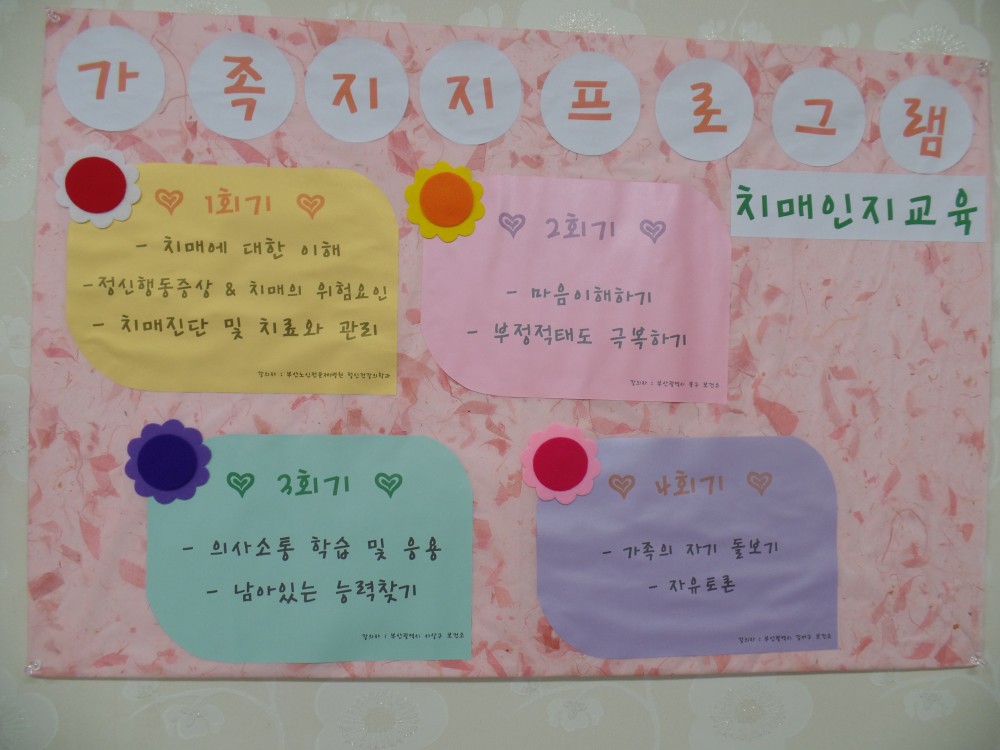 가족지지프로그램
치매인지교육
1회기
- 치매에 대한 이해
- 정신행동증상 & 치매의 위험요인
- 치매진단 및 치료와 관리
강의자 : 부산노인전문제병원 정신건강의학과
2회기
- 마음이해하기
- 부정적태도 극복하기
강의자 : 부산광역시 북구 보건소
3회기
- 의사소통 학습 및 응용
- 남아있는 능력찾기
강의자 : 부산광역시 사상구 보건소
4회기
- 가족의 자기 돌보기
- 자유토론
강의자 : 부산광역시 보건소